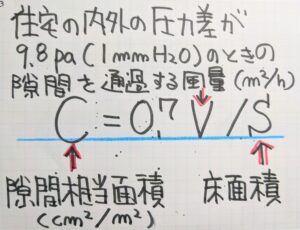 住宅の内外の圧力差が
9.8pa(1mmH2O)のときの
隙間を通過する風量(m²/h)
C=0.7V/S
隙間相当面積 床面積
(cm²/m²)